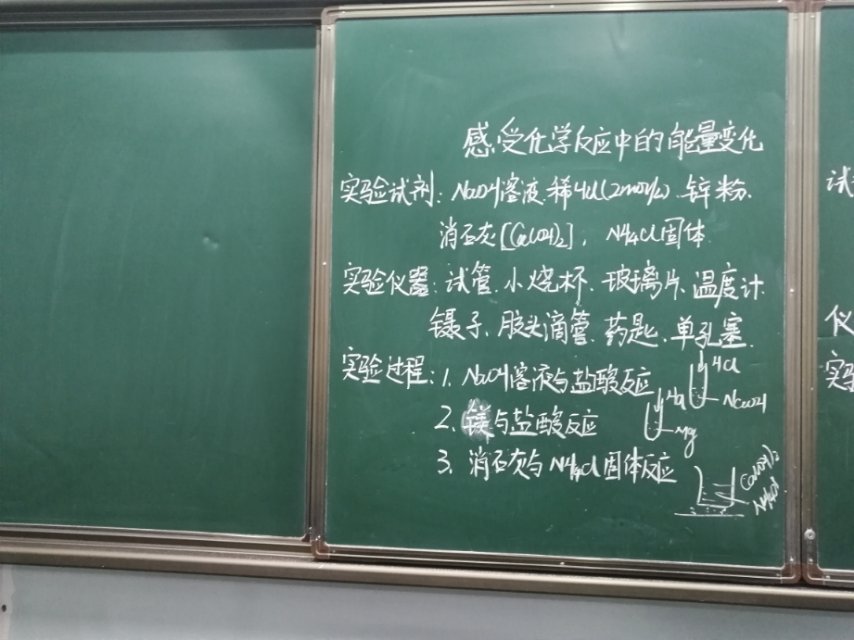 感受化学反应中的能量变化
实验试剂: NaOH溶液.稀HCl(2mol/L) 锌粉.
消石灰[Ca(OH)2], NH4Cl固体
实验仪器: 试管.小烧杯、玻璃片、温度计
镊子、胶头滴管、药匙、单孔塞.
实验过程: 1. NaOH溶液与盐酸反应
HCl
NaOH
2. 镁与盐酸反应
HCl
Mg
3. 消石灰与NH4Cl固体反应
Ca(OH)2
NH4Cl
试
仪
实验